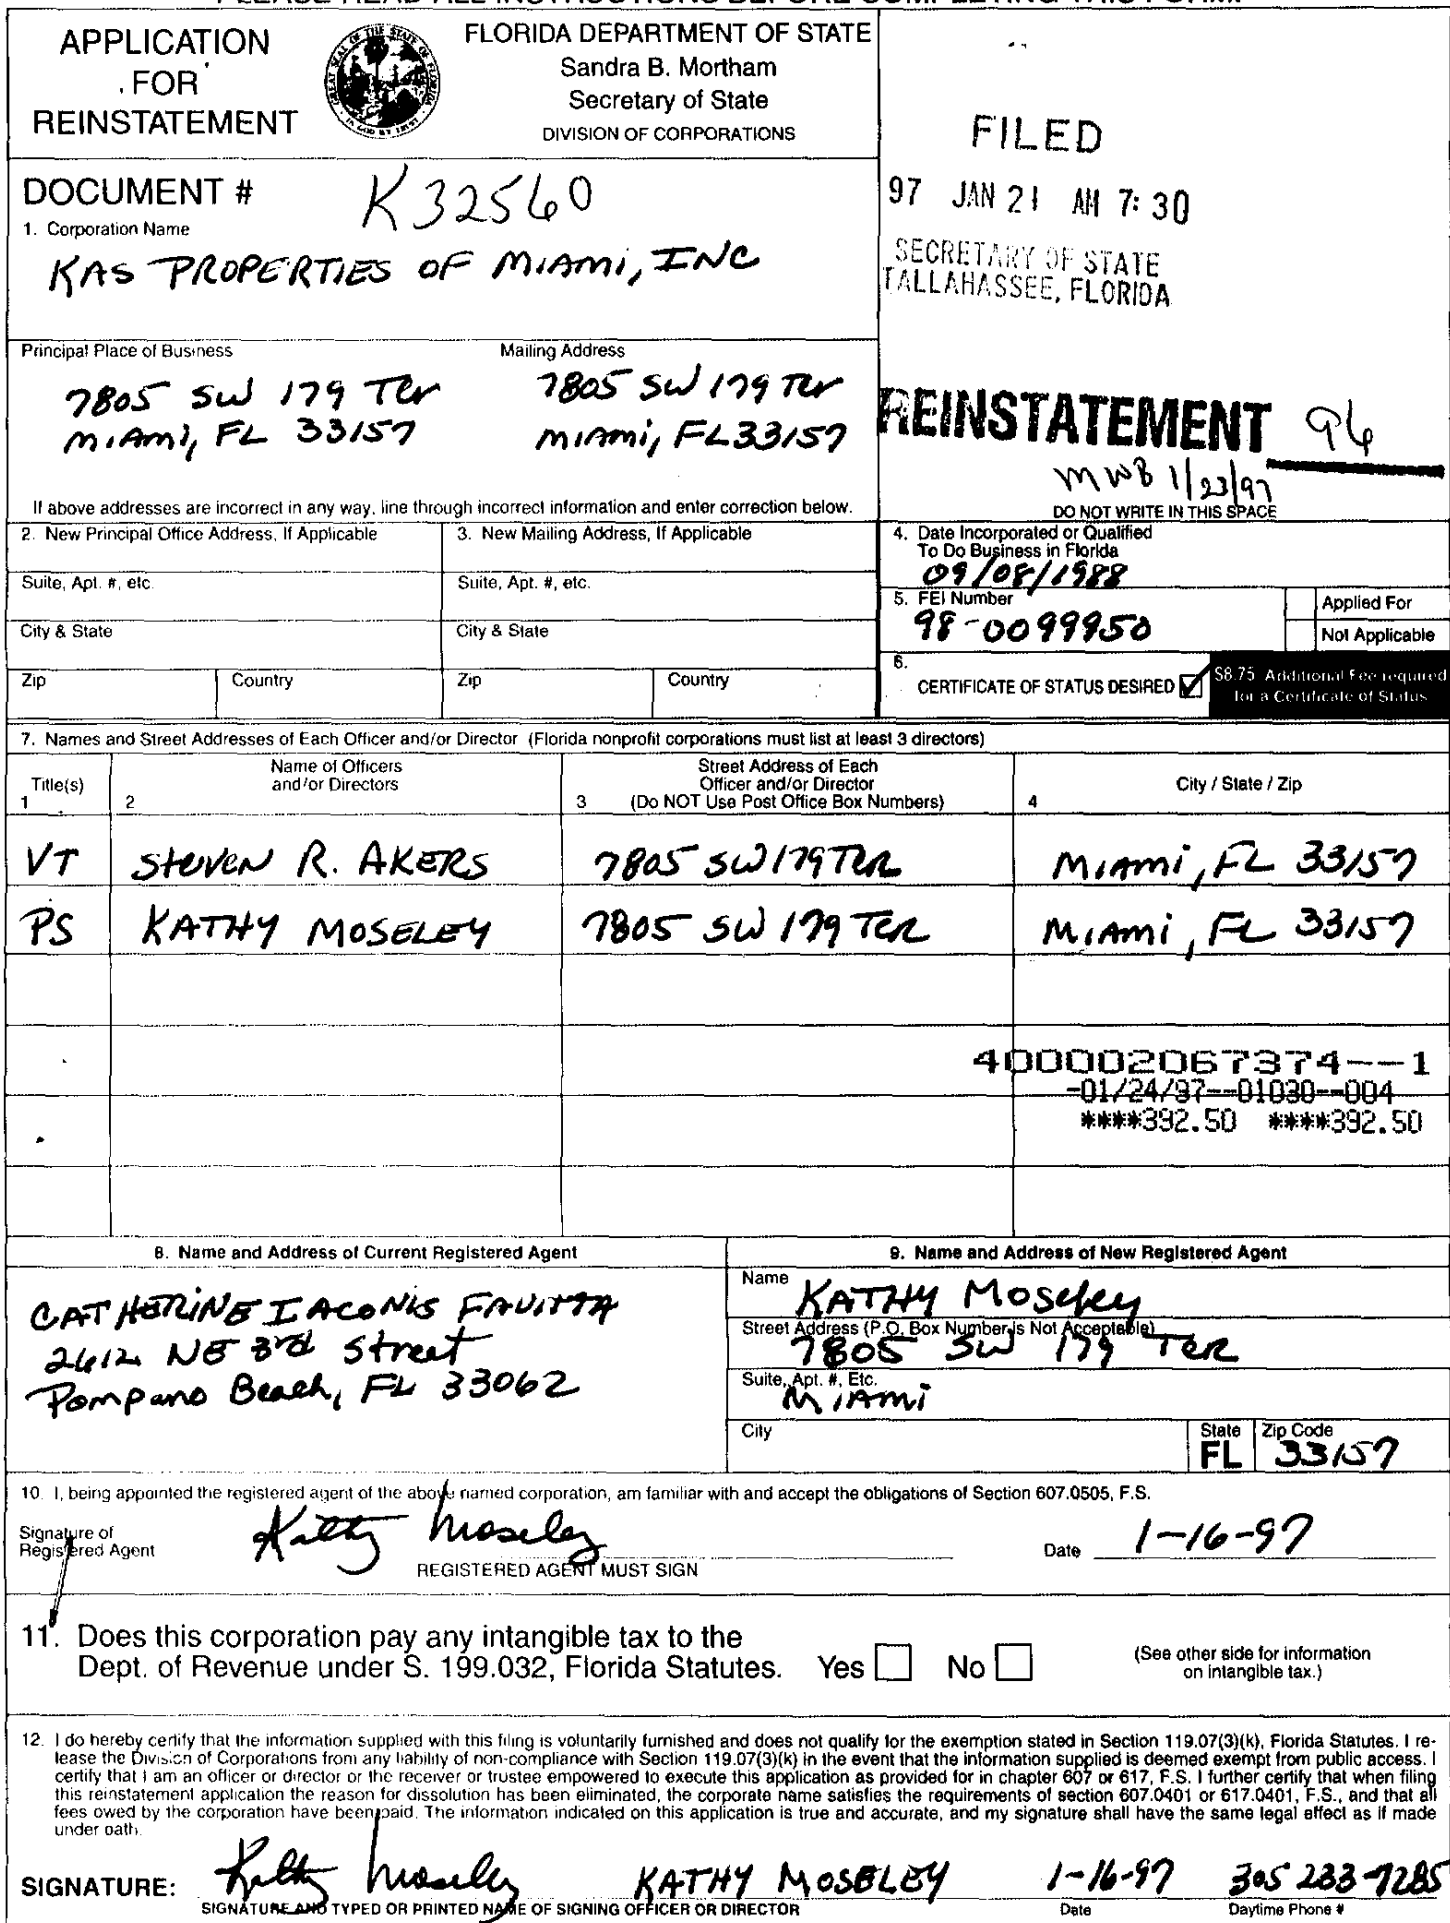 PLEASE READ ALL INSTRUCTIONS BEFORE COMPLETING THIS FORM.
APPLICATION
FOR
REINSTATEMENT
GREAT SEAL OF THE STATE OF FLORIDA
IN GOD WE TRUST
FLORIDA DEPARTMENT OF STATE
Sandra B. Mortham
Secretary of State
DIVISION OF CORPORATIONS
FILED
97 JAN 21 AM 7:30
SECRETARY OF STATE
TALLAHASSEE, FLORIDA
DOCUMENT # K32560
1. Corporation Name
KAS PROPERTIES OF MIAMI, INC
Principal Place of Business
7805 SW 179 Ter
MIAMI, FL 33157
Mailing Address
7805 SW 179 Ter
MIAMI, FL 33157
REINSTATEMENT 96
MWB 1/23/97
DO NOT WRITE IN THIS SPACE
If above addresses are incorrect in any way, line through incorrect information and enter correction below.
2. New Principal Office Address, If Applicable
3. New Mailing Address, If Applicable
Suite, Apt. #, etc.
Suite, Apt. #, etc.
City & State
City & State
Zip
Country
Zip
Country
4. Date Incorporated or Qualified
To Do Business in Florida
09/08/1988
5. FEI Number
98-0099950
Applied For
Not Applicable
6.
CERTIFICATE OF STATUS DESIRED
$8.75 Additional Fee required
for a Certificate of Status
7. Names and Street Addresses of Each Officer and/or Director (Florida nonprofit corporations must list at least 3 directors)
Title(s)
1
Name of Officers
and/or Directors
2
Street Address of Each
Officer and/or Director
3 (Do NOT Use Post Office Box Numbers)
City / State / Zip
4
VT STEVEN R. AKERS 7805 SW 179 TER MIAMI, FL 33157
PS KATHY MOSELEY 7805 SW 179 TER MIAMI, FL 33157
400002067374--1
-01/24/97--01030--004
****392.50 ****392.50
8. Name and Address of Current Registered Agent
CATHERINE IACONIS FAVITTA
2612 NE 3rd Street
Pompano Beach, FL 33062
9. Name and Address of New Registered Agent
Name
KATHY Moseley
Street Address (P.O. Box Number is Not Acceptable)
7805 SW 179 TER
Suite, Apt. #, Etc.
MIAMI
City
State
FL
Zip Code
33157
10. I, being appointed the registered agent of the above named corporation, am familiar with and accept the obligations of Section 607.0505, F.S.
Signature of
Registered Agent
Kathy Moseley
REGISTERED AGENT MUST SIGN
Date 1-16-97
11. Does this corporation pay any intangible tax to the
Dept. of Revenue under S. 199.032, Florida Statutes. Yes No
(See other side for information
on intangible tax.)
12. I do hereby certify that the information supplied with this filing is voluntarily furnished and does not qualify for the exemption stated in Section 119.07(3)(k), Florida Statutes. I re-
lease the Division of Corporations from any liability of non-compliance with Section 119.07(3)(k) in the event that the information supplied is deemed exempt from public access. I
certify that I am an officer or director or the receiver or trustee empowered to execute this application as provided for in chapter 607 or 617, F.S. I further certify that when filing
this reinstatement application the reason for dissolution has been eliminated, the corporate name satisfies the requirements of section 607.0401 or 617.0401, F.S., and that all
fees owed by the corporation have been paid. The information indicated on this application is true and accurate, and my signature shall have the same legal effect as if made
under oath.
SIGNATURE: Kathy Moseley KATHY MOSELEY 1-16-97 305 233-7285
SIGNATURE AND TYPED OR PRINTED NAME OF SIGNING OFFICER OR DIRECTOR
Date
Daytime Phone #